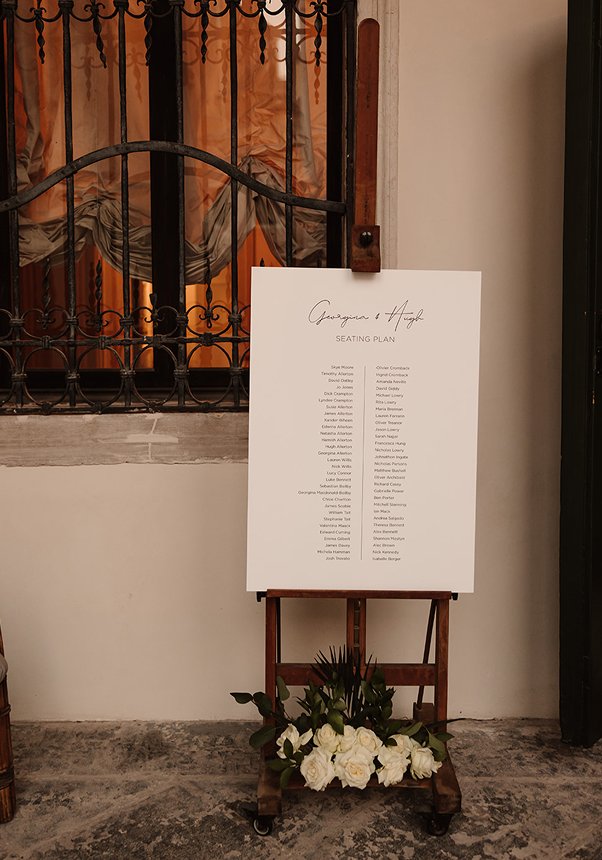 Georgina & Hugh
SEATING PLAN
Skye Moore
Timothy Allerton
David Oatley
Jo Jones
Dick Crampton
Lyndee Crampton
Susie Allerton
James Allerton
Xander Wheen
Edwina Allerton
Natasha Allerton
Hamish Allerton
Hugh Allerton
Georgina Allerton
Lauren Wills
Nick Wills
Lucy Connor
Luke Bennett
Sebastian Bailby
Georgina Macdonald-Bailby
Chloe Charlton
James Scobie
William Tait
Stephanie Tait
Valentina Maack
Edward Curling
Emma Gilbert
James Davey
Michela Hamman
Josh Trevallo
Olivier Cromback
Ingrid Cromback
Amanda Neville
David Giddy
Michael Lowry
Rita Lowry
Maria Brennan
Lauren Ferrarin
Oliver Treanor
Jason Lowry
Sarah Najjar
Francesca Hung
Nicholas Lowry
Johnathon Ingate
Nicholas Parsons
Matthew Bushell
Oliver Archibald
Richard Casey
Gabrielle Power
Ben Porter
Mitchell Slanning
Joe Mack
Andrea Salgado
Theresa Bennett
Alex Bennett
Shannon Mostyn
Alec Brown
Nick Kennedy
Isabelle Berger